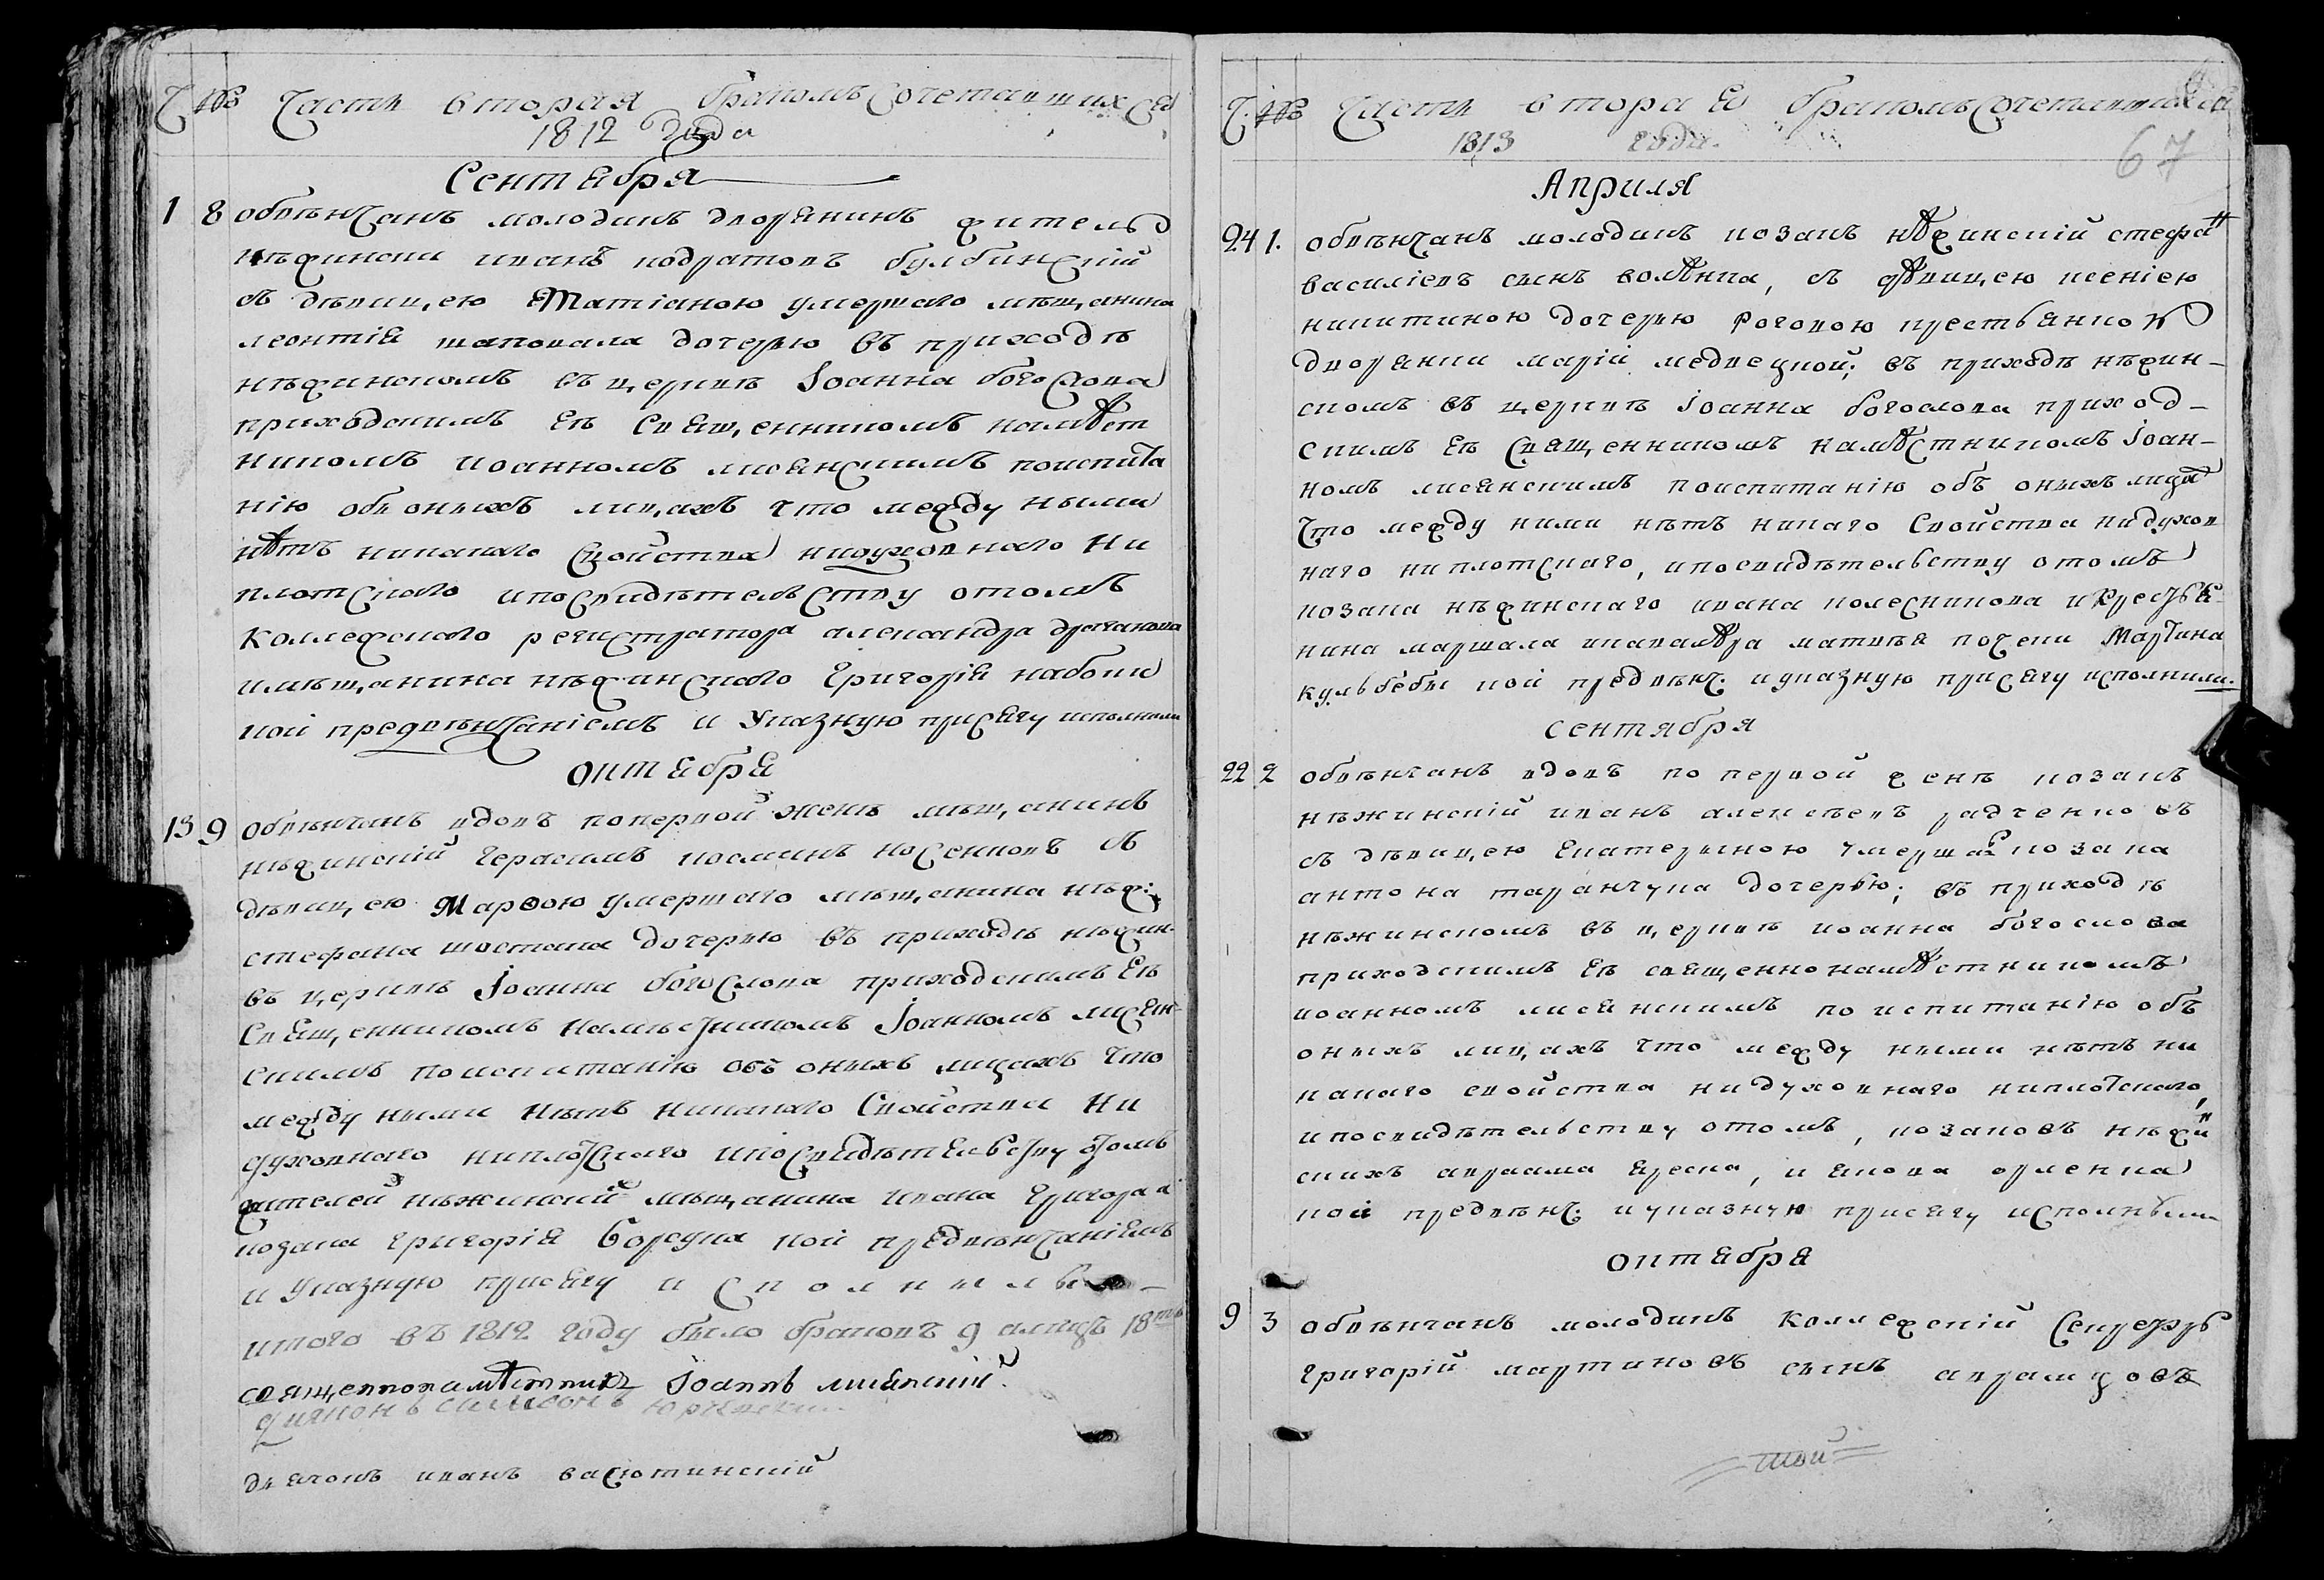 Ч. №о Часть вторая бракомъ сочетавшихся
1812 года
Сентября
1 8 обвѣнчанъ молодикъ дворянинъ житель
нѣжински иванъ кодратовъ булбинскій
съ дѣвицею Татіаною умершаго мѣщанина
леонтія шаповала дочерью въ приходѣ
нѣжинскомъ въ церквѣ Іоанна богослова
приходскимъ Еѣ Священникомъ намѣст
никомъ иоанномъ лисянскимъ поиспита
нію обв оныхъ лицахъ что между ными
нѣтъ никакаго свойства нидуховнаго ни
плотскаго ипосвидѣтельству отомъ
Коллежскаго регистратора александра драганова
имѣщанина нѣжинскаго Григорія набоки
кои предвѣнчаніемъ и Указную присягу исполнили
октября
13 9 обвѣнчанъ вдовъ попервой женѣ мѣщанинъ
нѣжинскій герасимъ космынъ носенковъ съ
дѣвицею Марѳою умершаго мѣщанина нѣж:
стефана шостака дочерью въ приходѣ нѣжин:
въ церквѣ Іоанна богослова приходскимъ Еѣ
Священникомъ намѣстникомъ Іоанномъ лисян-
скимъ поиспитанію объ оныхъ лицахъ что
между ными нѣтъ никакаго Свойства ни
духовнаго ниплотскаго ипосвидѣтельству отомъ
жителей нѣжинский мѣщанина ивана григора
козака григорія борсука кои предвѣнчаніемъ
и указную присягу исполныли
итого въ 1812 году было браковъ 9 алицъ 18ть
священнонамѣстникъ Іоаннъ лисянскій.
дияконъ самсонъ
дьячокъ иванъ васютинскій
Ч. №о Часть вторая бракомъ сочетавшихся
1813 года.
67
Априля
24 1. обвѣнчанъ молодикъ козакъ нѣжинскій стефан
василіевъ сынъ волѣнка, съ дѣвицею ксеніею
никитиною дочерью роговою крестьянкою
дворянки маріи медвецкой; въ приходѣ нѣжин-
скомъ въ церквѣ Іоанна богослова приход-
скимъ Еѣ Священникомъ намѣстникомъ Іоан-
номъ лисянскимъ поиспитанію объ оныхъ лицах
что между ними нѣтъ никаго свойства нидухов
наго ниплотскаго, ипосвидѣтельству отомъ
козака нѣжинскаго ивана колесникова икрестья-
нина маршала икавалѣра матвѣя почеки Мартина
кульбебы кои предвѣнч: иуказную присягу исполнили.
сентября
22 2 обвѣнчанъ вдовъ по первой женѣ козакъ
нѣжинскій иванъ алексѣевъ радченковъ
съ дѣвицею Екатериною умершаго козака
антона таранчука дочерью; въ приходѣ
нѣжинскомъ въ церквѣ иоанна богослова
приходскимъ Еѣ священнонамѣстникомъ
иоанномъ лисянскимъ по испитанію объ
оныхъ лицахъ что между ными нѣтъ ни
какаго свойства нидуховнаго ниплотскаго,
ипосвидѣтельству отомъ, козаковъ нѣжи
скихъ авраама ереска, и якова орленка
кои предвѣнч: иуказную присягу исполныли
октября
9 3 обвѣнчанъ молодикъ коллежскій Секретрь
григорій мартиновъ сынъ аврамцовъ